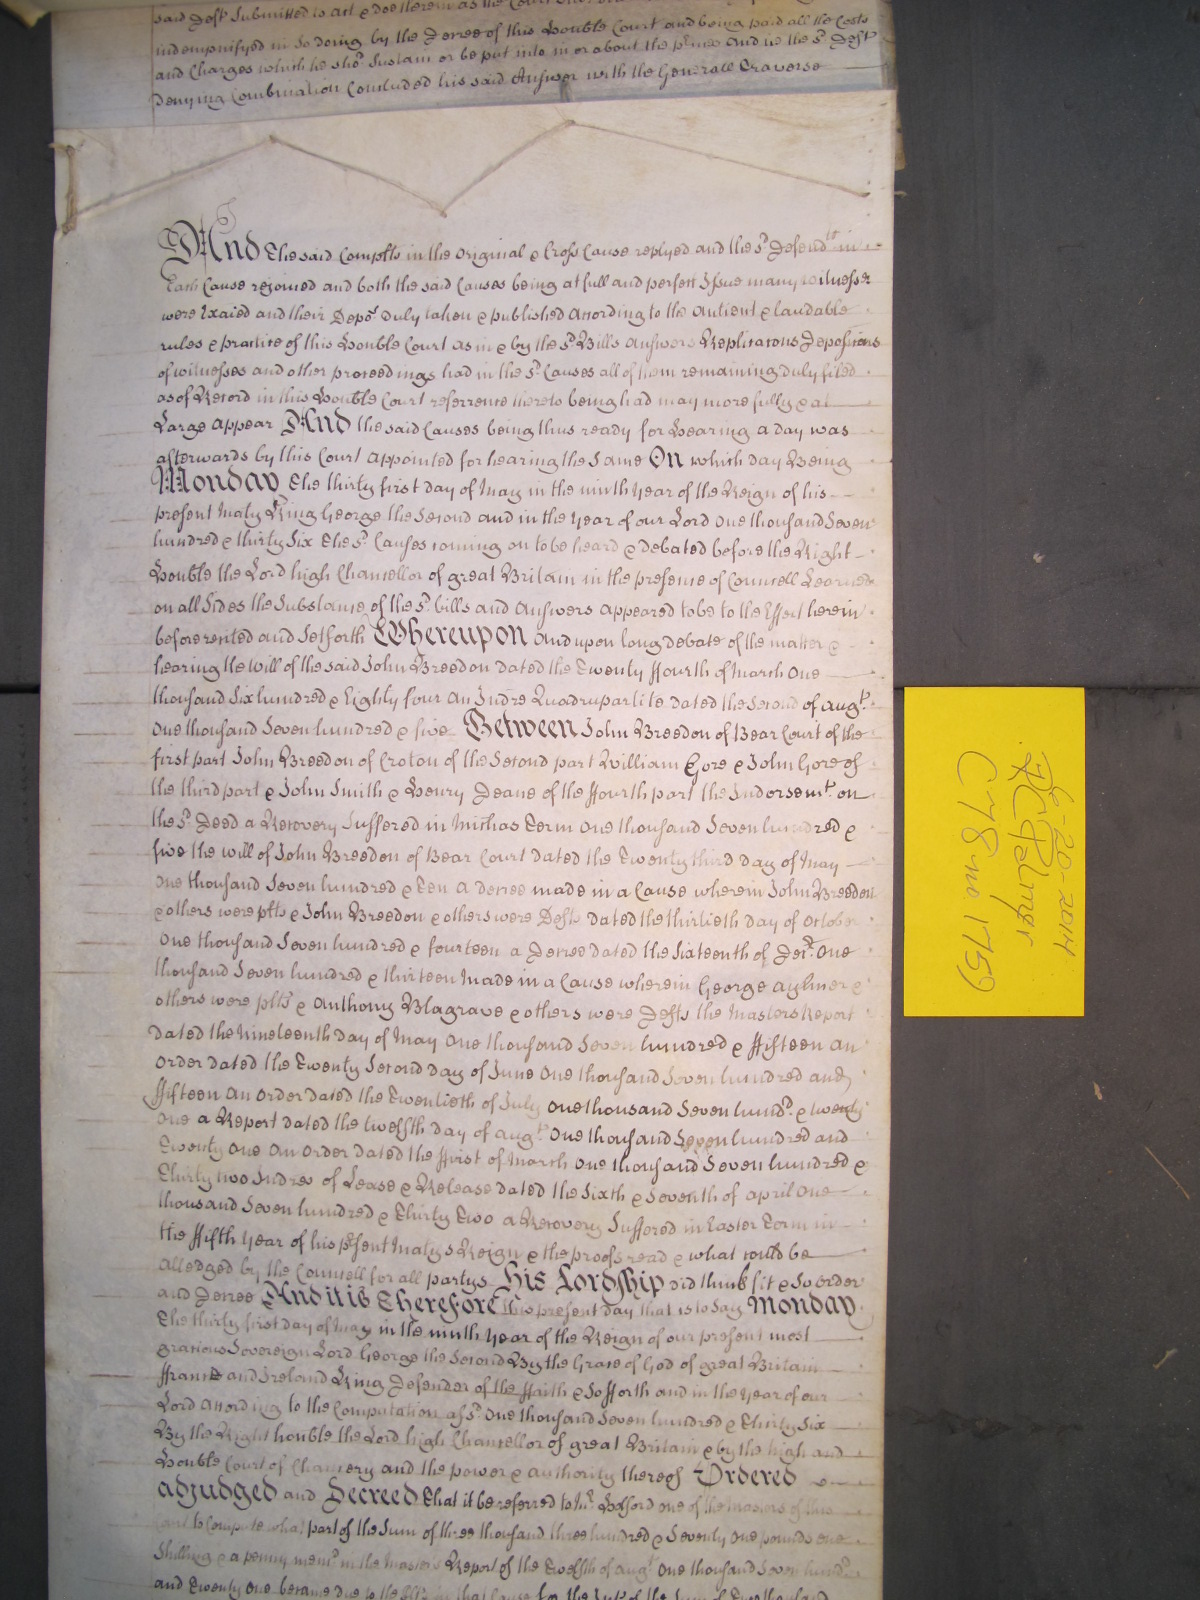 said Deft Submitted to act & doe therein as the Court
indempnifyed in so doing by the Decree of this Honble Court and being paid all the Costs
and Charges which he sho^d Sustain or be put into in or about the p^rmes And he the s^d Deft
denying Combination Concluded his said Answer with the Generall Traverse
And The said Complts in the Original & Cross Cause replyed and the s^d Defend^ts in
Each Cause rejoined and both the said Causes being at full and perfect Issue many witnesses
were Exaied and their Depo^s duly taken & published according to the Antient & laudable
rules & practice of this Honble Court as in & by the s^d Bills Answers Replicacons Depositions
of witnesses and other proceedings had in the s^d Causes all of them remaining duly filed
as of Record in this Honble Court referrence thereto being had may more fully & at
Large appear And the said Causes being thus ready for hearing a day was
afterwards by this Court appointed for hearing the Same On which day Being
Monday The thirty first day of May in the ninth year of the Reign of his
present Maty King George the Second and in the Year of our Lord One thousand Seven
hundred & thirty Six The s^d Causes coming on to be heard & debated before the Right
Honble the Lord high Chancellor of great Britain in the presence of Councell Learned
on all Sides the Substance of the s^d bills and Answers appeared to be to the Effect herein
before recited and Setforth Whereupon and upon long debate of the matter &
hearing the will of the said John Breedon dated the Twenty ffourth of March One
thousand Six hundred & Eighty four An Indre Quadrupartite dated the Second of Aug^t
One thousand Seven hundred & five Between John Breedon of Bear Court of the
first part John Breedon of Croton of the Second part William Gore & John Gore of
the third part & John Smith & Henry Deane of the ffourth part the Indorsem^t on
the s^d Deed a Recovery Suffered in Michas Term One thousand Seven hundred &
five the will of John Breedon of Bear Court dated the Twenty third day of May
One thousand Seven hundred & Ten a decree made in a Cause wherein John Breedon
& others were plts & John Breedon & others were Defts dated the thirtieth day of October
One thousand Seven hundred & fourteen a Decree dated the Sixteenth of Dec^r One
thousand Seven hundred & thirteen made in a Cause wherein George aylmer &
others were plts & Anthony Blagrave & others were Defts the Masters Report
dated the Nineteenth day of May One thousand Seven hundred & ffifteen an
Order dated the Twenty Second day of June One thousand Seven hundred and
ffifteen An Order dated the Twentieth of July One thousand Seven hund^d & twenty
One a Report dated the twelfth day of aug^t One thousand Seven hundred and
Twenty One An Order dated the ffirst of March One thousand Seven hundred &
Thirty two Indres of Lease & Release dated the Sixth & Seventh of april One
thousand Seven hundred & Thirty Two a Recovery Suffered in Easter Term in
the ffifth Year of his p^rsent Matys Reign & the proofs read & what could be
alledged by the Councell for all partys His Lordship did think fit & So order
and Decree And it is Therefore this present day that is to Say Monday
The thirty first day of May in the ninth Year of the Reign of our present most
gracious Sovereign Lord George the Second By the Grace of God of great Britain
ffrance and Ireland King Defender of the ffaith & So fforth and in the Year of our
Lord According to the Computation afs^d One thousand Seven hundred & Thirty Six
By the Right honble the Lord high Chancellor of great Britain & by the high and
Honble Court of Chancery and the power & authority thereof Ordered
adjudged and Decreed That it be referred to M^r one of the Masters of this
Court to Compute what part of the Sum of three thousand three hundred & Seventy One pounds one
Shilling & a penny men^d in the Master's Report of the Twelfth of aug^t One thousand Seven hund^d
and Twenty One became due to the in that Cause for the of the Sum of Two thousand
6-20-2014
R C Palmer
C 78 no. 1759